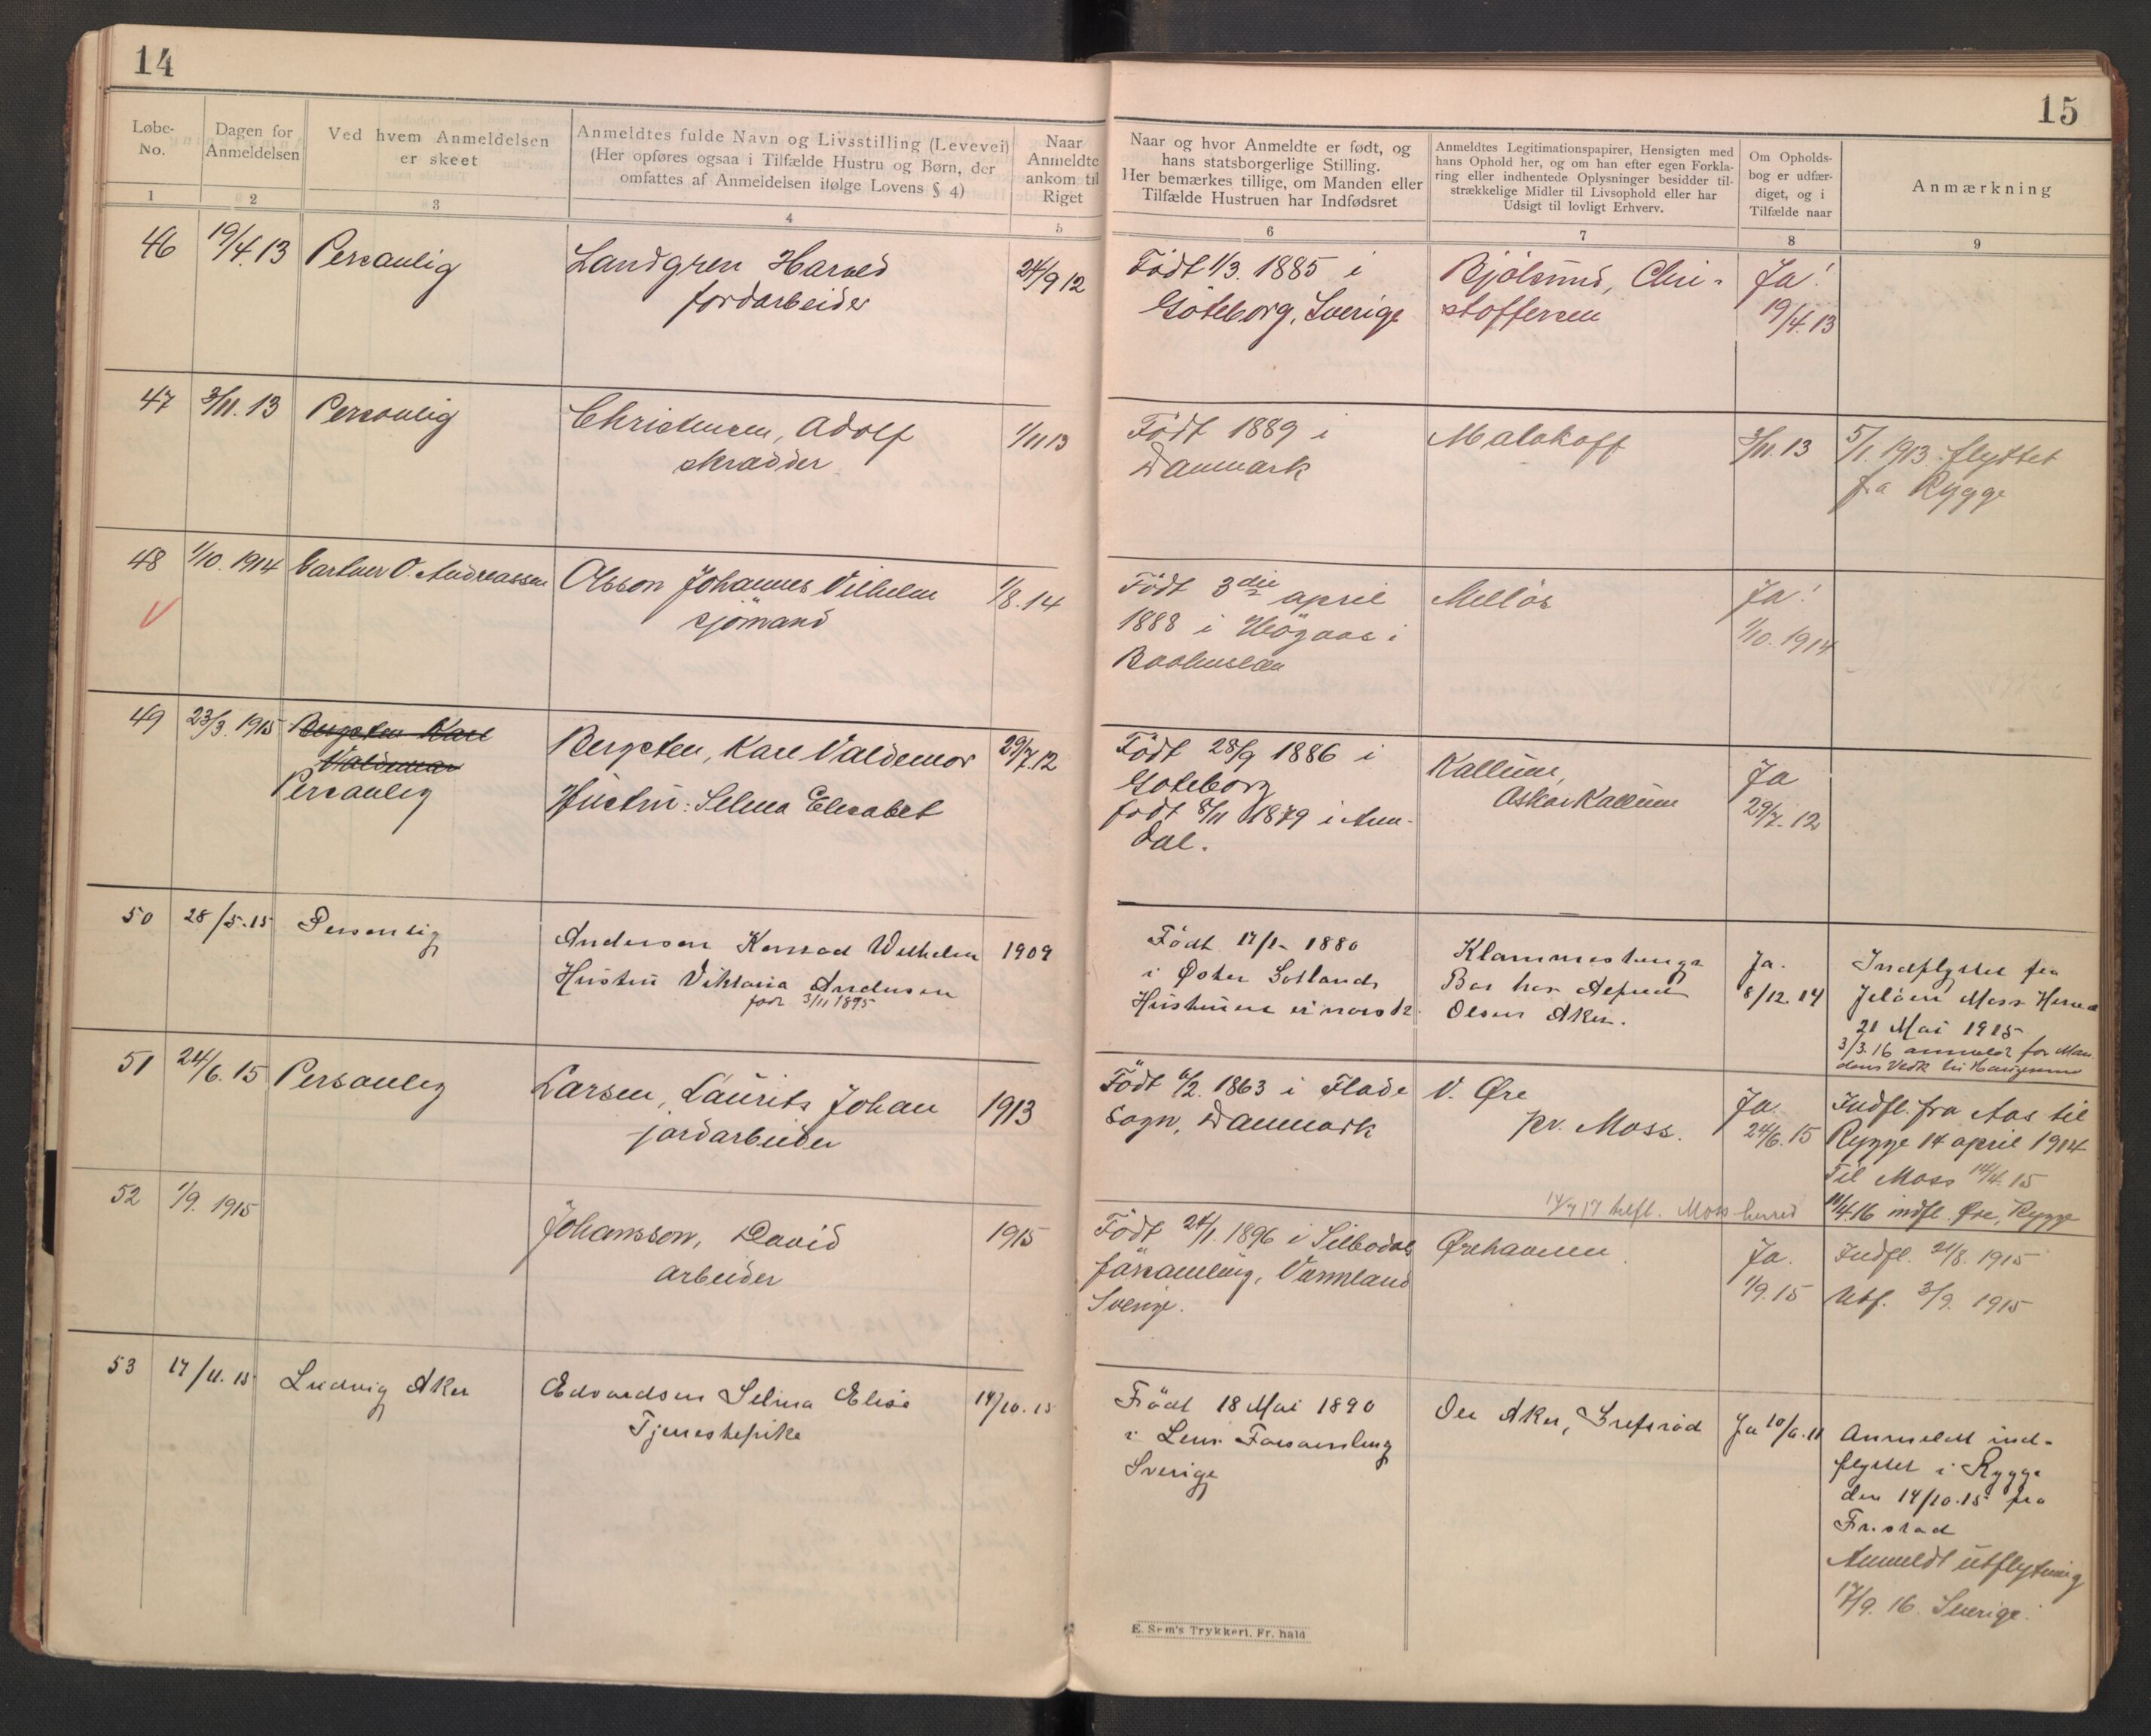 14
Løbe-
No.
Dagen for
Anmeldelsen
Ved hvem Anmeldelsen
er skeet
Anmeldtes fulde Navn og Livsstilling (Levevei)
(Her opføres ogsaa i Tilfælde Hustru og Børn, der
omfattes af Anmeldelsen ifølge Lovens § 4)
Naar
Anmeldte
ankom til
Riget
1
2
3
4
5
46
19/4.13
Personlig
Landgren Harved
jordarbeider
24/9 12
47
3/11.13
Personlig
Christensen, Adolf
skrædder
1/11 13
48
1/10.1914
Gartner O. Andreassen
Olsson Johannes Vilhelm
sjömand
1/8.14
49
23/3.1915
Bergsten Karl
Valdemar
Personlig
Bergsten, Karl Valdemar
Hustru: Selma Elisabet
29/7.12
50
28/5.15
Personlig
Anderson Konrad Wilhelm
Hustru Viktoria Andersen
født 3/11 1895
1909
51
24/6.15
Personlig
Larsen, Laurits Johan
jordarbeider
1913
52
1/9.1915
Johansson, David
arbeider
1915
53
17/11.15
Ludvig Aker
Edvardsen Selma Elise
Tjenestepike
14/10.15
15
Naar og hvor Anmeldte er født, og
hans statsborgerlige Stilling.
Her bemærkes tillige, om Manden eller
Tilfælde Hustruen har Indfødsret
Anmeldtes Legitimationspapirer, Hensigten med
hans Ophold her, og om han efter egen Forkla-
ring eller indhentede Oplysninger besidder til-
strækkelige Midler til Livsophold eller har
Udsigt til lovligt Erhverv.
Om Opholds-
bog er udfær-
diget, og i
Tilfælde naar
Anmærkning
6
7
8
9
Født 1/3. 1885 i
Göteborg, Sverige
Bjölsund, Chri-
stoffersen
Ja!
19/4.13
Født 1889 i
Danmark
Malakoff
3/11.13
5/1.1913 flyttet
fra Rygge
Født 3die april
1888 i
Bohuslen
Mellös
Ja!
1/10.1914
Født 28/9 1886 i
Göteborg
født 8/11 1879 i Aren-
dal.
Kallum,
Oskar Kallum
Ja
29/7.12
Født 17/1 1880
i Øster Gotland
Hustruen er norsk
Klommestenga
Bor hos Alfred
Olsen Aker.
Ja.
8/12.14
Indflyttet fra
Jelöen Moss Herred
21 Mai 1915
3/3.16 anmeldt for Man-
dens Vedk
Født 6/2. 1863 i Flade
Sogn, Danmark
V. Øre
pr. Moss.
Ja.
24/6.15
Indfl. fra Aas til
Rygge 14 april 1914
Til Moss 14/4.15
14/4.16 indfl. Øre, Rygge
Moss herred
Født 24/1.1896 i Silbodals
församling, Varmland
Sverige.
Ørehavnen
Ja.
1/9.15
Indfl. 21/8.1915
Utf. 3/9.1915
Född 18 Mai 1890
i Församling
Sverige
Ole Aker, Grefsrød
Ja 10/6.11
Anmeldt ind-
flyttet i Rygge
den 14/10.15 fra
Fr.stad
Anmeldt utflytning
17/9.16. Sverige.
E. Sem's Trykkeri, Fr. hald